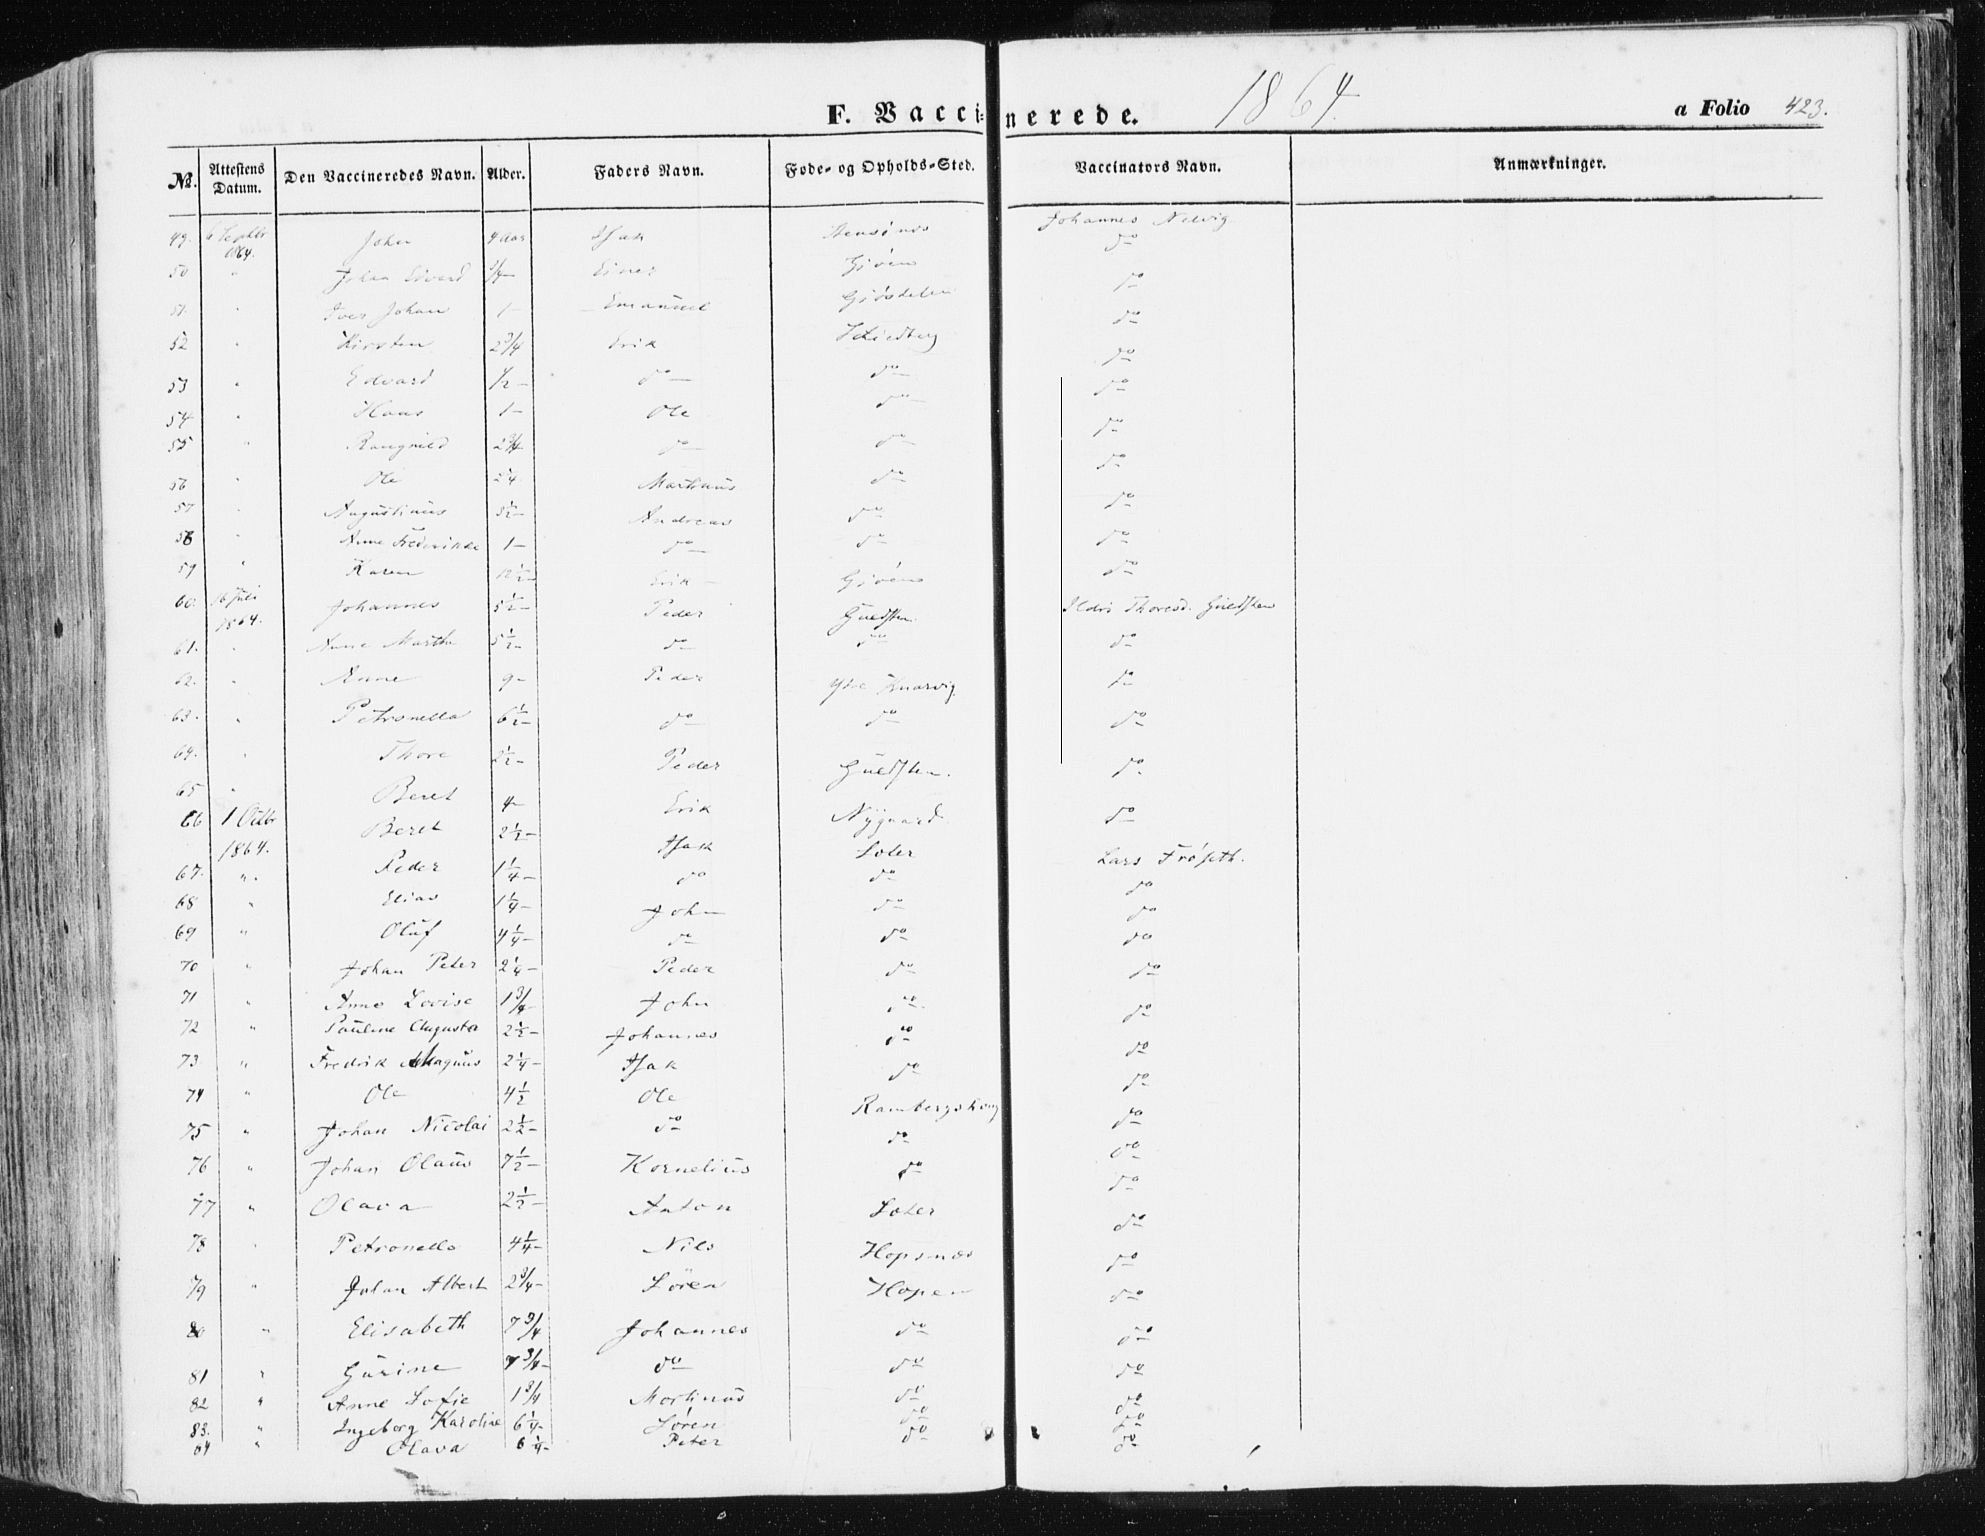 F. Vaccinerede. 1864. a Folio 423.
№. Attestens Datum. Den Vaccineredes Navn. Alder. Faders Navn. Føde- og Opholds-Sted. Vaccinators Navn. Anmærkninger.
49. 6 Septbr 1864. John 4 Aar Isak Johannes Nelvig
50 " Johan Edvard 3/4 – Einer Gjøen do
51. " Iver Johan 1 – Emanuel Gjøsdalen do
52 " Kirsten 2 3/4 Erik do
53 " Edvard 1/2 – do – do – do
54 " Hans 1 – Ole do – do
55 " Rangnild 2 3/4 do – do – do
56 " Ole Martinus do do
57 " Augustinus 5 1/2 – Andreas do do
58 " Anne Frederikke 1 – do – do do
59 " Karen Erik – Gjøen do
60. 16 Juli 1864. Johannes 5 1/2 – Peder Guldsten Ildri Thoresd. Guldsten
61. " Anne Martha 5 1/2 – do do do
62. " Anne 9 – Peder Ytre Knarvig do
63. " Petronella 6 1/2 – do do do
64. " Thore 2 1/2 – Peder Guldsten. do
65 " Beret 4 – Erik Nÿgaard do
66 1 Octbr 1864. Beret 2 1/2 – Isak Soler Lars Frøseth.
67. " Peder 1 1/4 – do do do
68 " Elias 1 1/4 – John do do
69 " Oluf 4 1/4 – do do do
70 " Johan Peter 2 1/4 – Peder do do
71 " Anne Lovise 1 3/4 – John do do
72 " Pauline Augusta 2 1/2 – Johannes do do
73 " Fredrik Magnus 2 1/4 – Isak do do
74 " Ole 4 1/2 Ole Rambergshaug do
75 " Johan Nicolai 2 1/2 – do do do
76 " Johan Olaus 7 1/2 – Kornelius do do
77 " Olava 2 1/2 – Anton Soler do
78 " Petronella 4 1/4 – Nils Hopsnes do
79 " Johan Albert 2 3/4 – Sören Hopen do
80 " Elisabeth 7 3/4 Johannes do do
81 " Gurine 7 3/4 – do do do
82 " Anne Sofie 1 3/4 Mortinus do do
83. " Ingeborg Karoline 6 1/4 – Søren do do
84 " Olava 6 1/4 – Peter do do